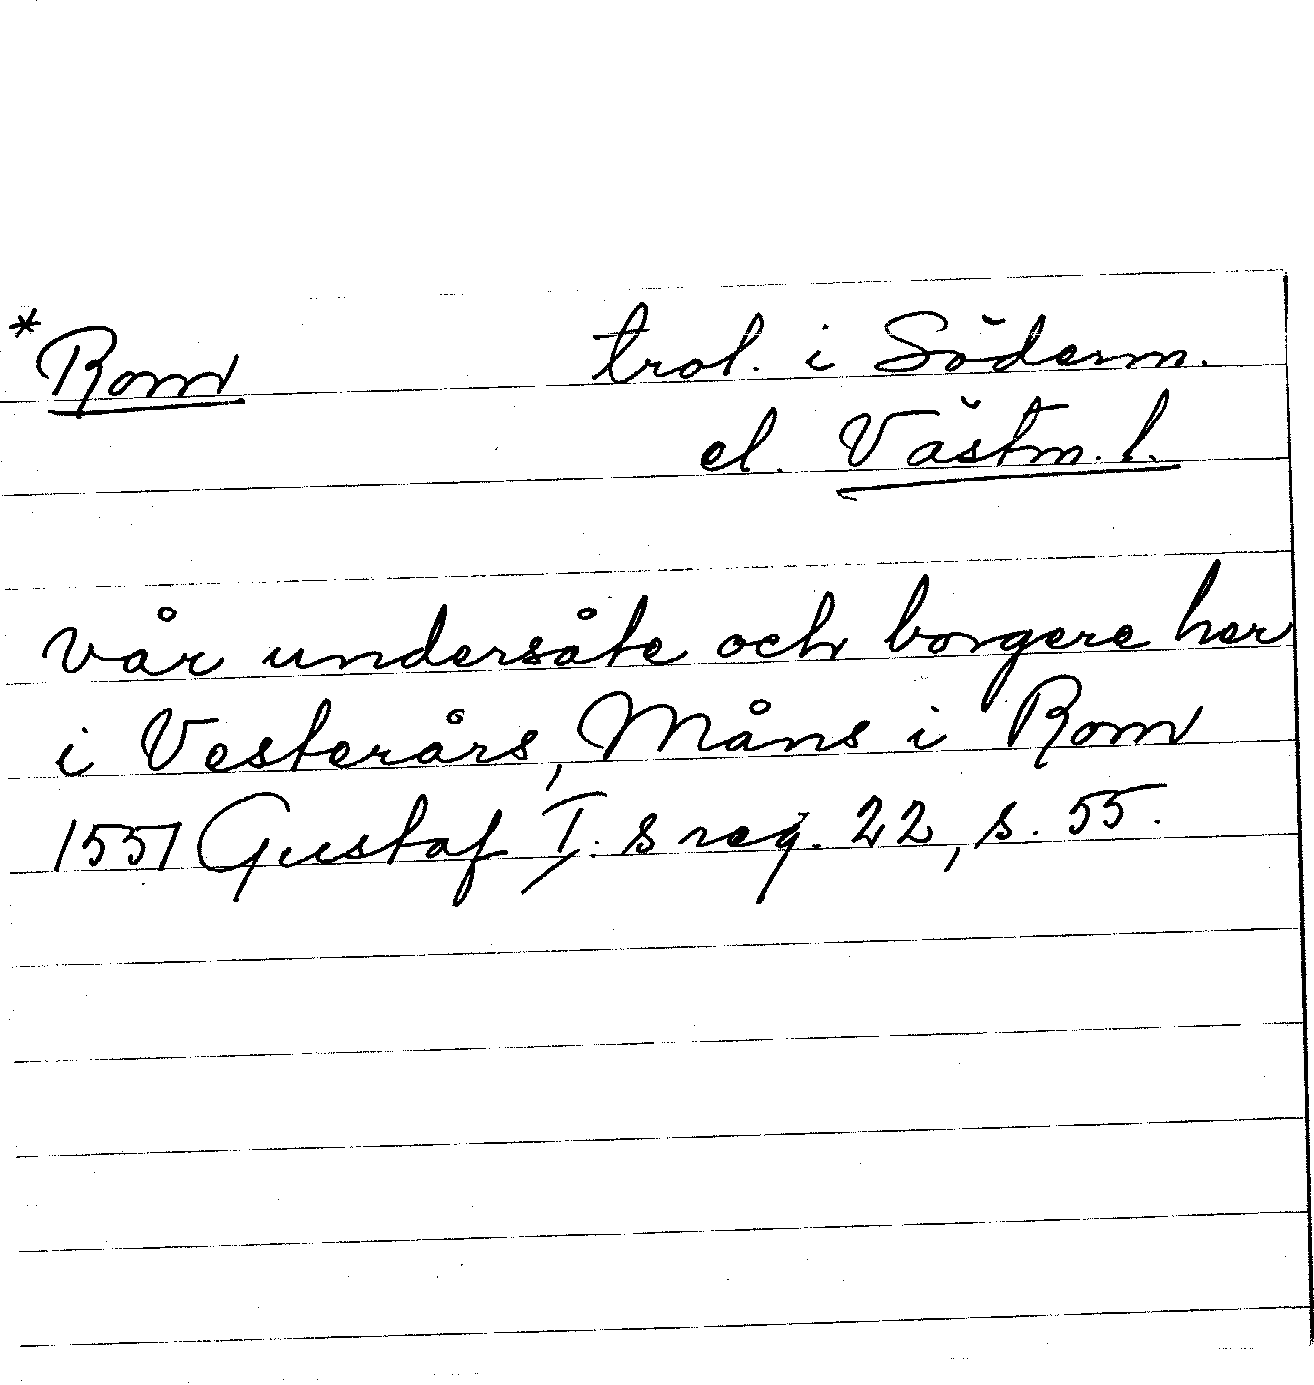 *Rom trol. i Söderm.
el. Västm. l.
vår undersåte och borgere her
i Vesterårs, Måns i Rom
1551 Gustaf I:s reg. 22, s. 55.